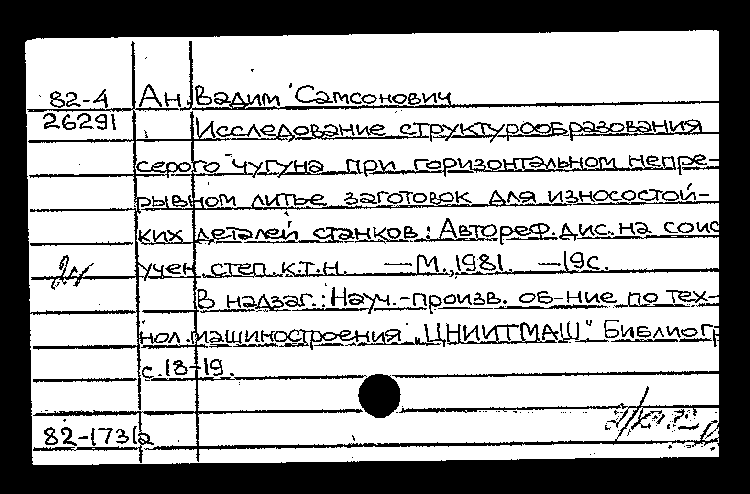 82-4 Ан Вадим Самсонович
26291 Исследование структурообразования
серого чугуна при горизонтальном непре-
рывном литье заготовок для износостой-
ких деталей станков: Автореф. дис. на соис
учен. степ. к.т.н. — М., 1981. — 19с.
В надзаг.: Науч.-произв. об-ние по тех-
нол. машиностроения „ЦНИИТМАШ“ Библиогр
с. 18-19.
82-1731а